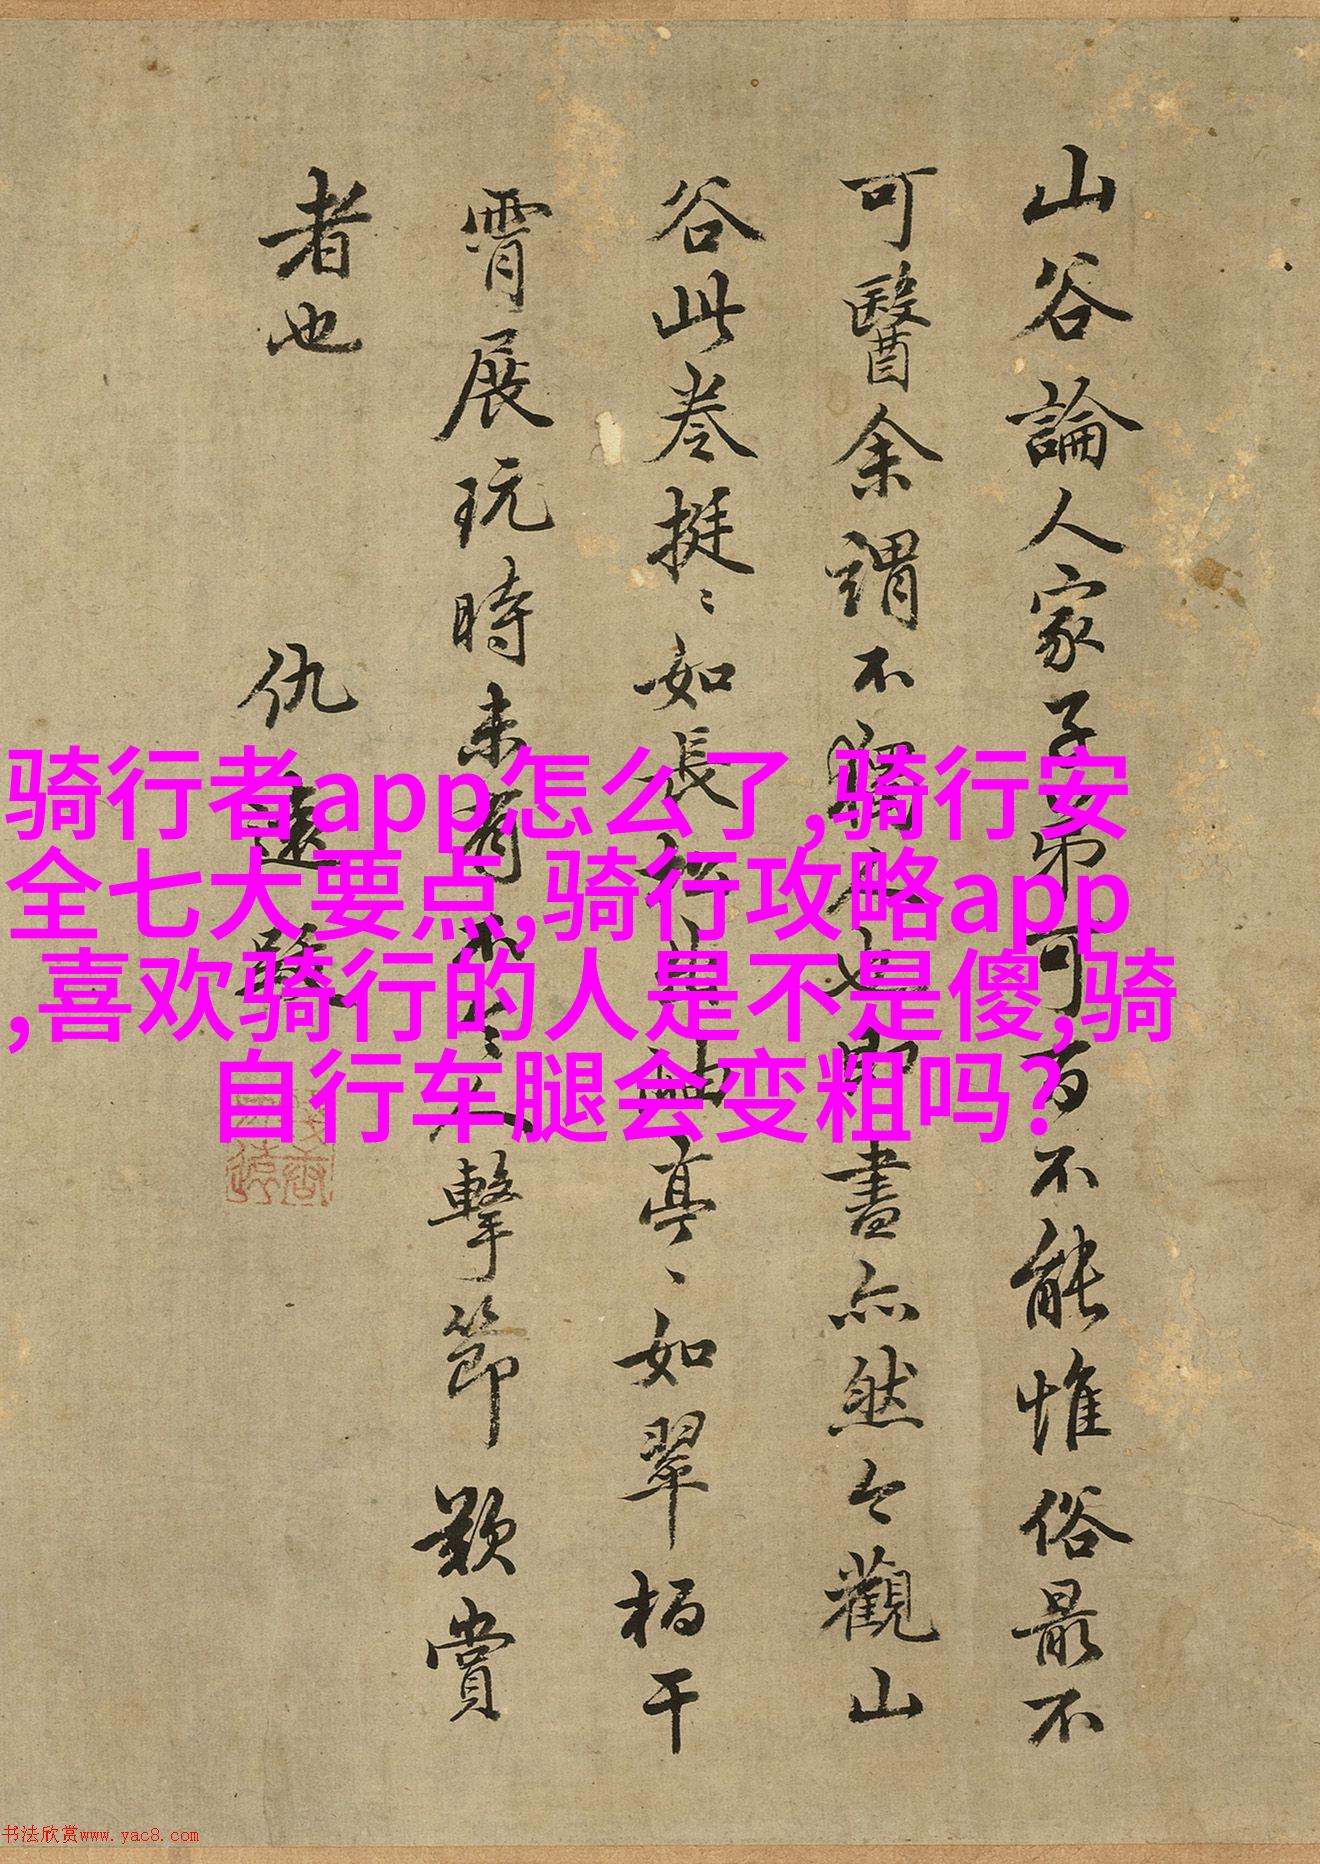 山谷論人家子弟可百不能惟俗最不
可醫余謂不獨人也畫亦然今觀山
谷此卷挺〻如長松出岫亭〻如翠柏干
霄展玩時未有不令人擊節歎賞
者也 仇遠
骑行者app怎么了,骑行安
全七大要点,骑行攻略app
,喜欢骑行的人是不是傻,骑
自行车腿会变粗吗?
书法欣赏www.yac8.com